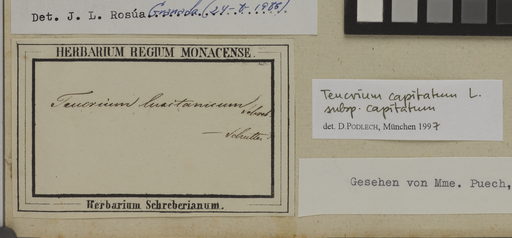 Det. J. L. Rosúa Granada (24-X-1986).
HERBARIUM REGIUM MONACENSE.
Teucrium lusitanicum Schreb.
Herbarium Schreberianum.
Teucrium capitatum L.
subsp. capitatum
det. D. PODLECH, München 1997
Gesehen von Mme. Puech,